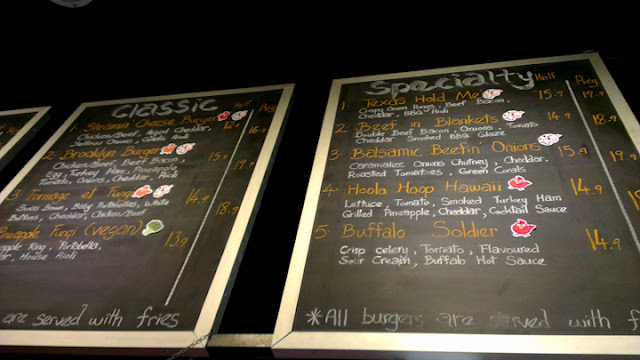 Classic Half Reg
1. Steamin Cheese Burger 12.9 16.9
Chicken/Beef, Aged Cheddar,
Yellow Onions, Garlic Aioli
2. Brooklyn Burger 15.9 19.9
Chicken/Beef, Beef Bacon,
Egg, Turkey Ham,
Tomato, Cheddar, Aioli
3. Fromage et Fungi 14.9 18.9
Swiss Brown, Baby Portobellos, White
Buttons, Cheddar, Chicken/Beef
Pineapple Fungi (vegan) 13.9
Pineapple Ring, Portobello,
House Aioli
are served with fries
Specialty Half Reg
1. Texas Hold Me 15.9 19.9
Crispy Onion Rings, Beef Bacon,
Cheddar, BBQ Aioli
2. Beef in Blankets 14.9 18.9
Double Beef Bacon, Onions, Tomato
Cheddar Smoked BBQ Glaze
3. Balsamic Beefin' Onions 15.9 19.
Caramalized Onions Chutney, Cheddar,
Roasted Tomatoes, Green Corals
4. Hoola Hoop Hawaii 14.9
Lettuce, Tomato, Smoked Turkey Ham
Grilled Pineapple, Cheddar, Cocktail Sauce
5. Buffalo Soldier 14.9
Crisp celery, Tomato, Flavoured
Sour Cream, Buffalo Hot Sauce
*All burgers are served with f